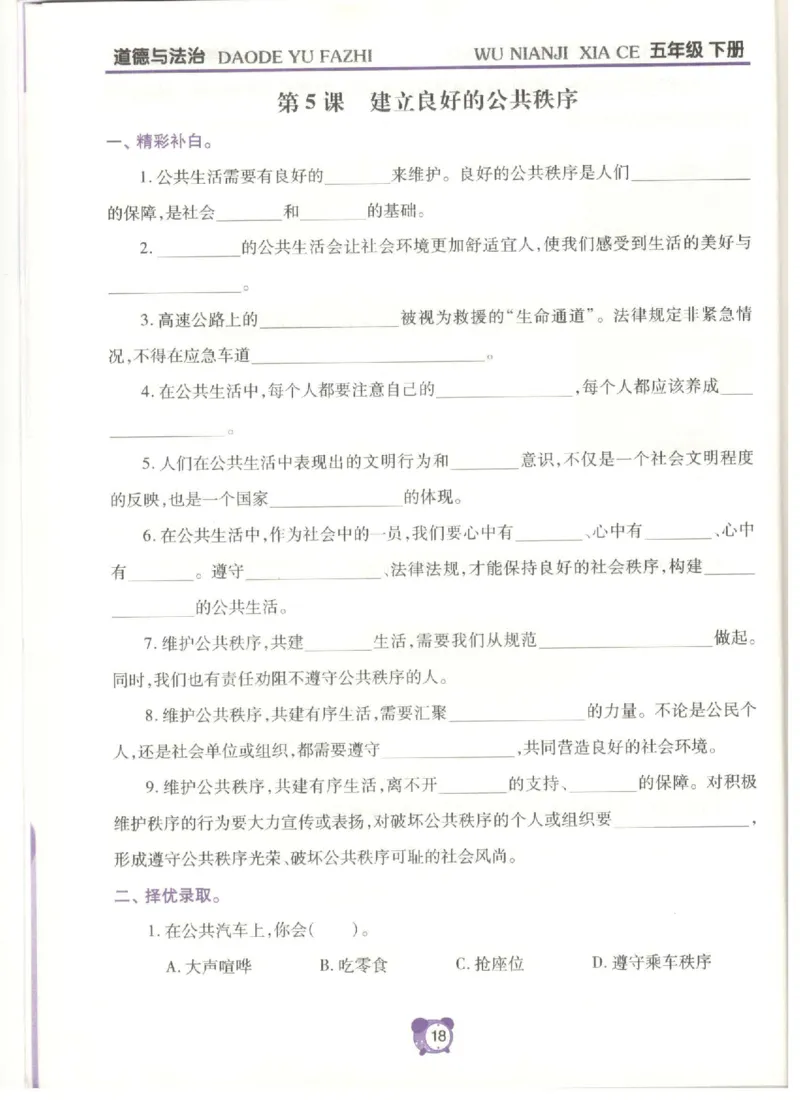 道德与法治 DAODE YU FAZHI WU NIANJI XIA CE 五年级 下册
第5课 建立良好的公共秩序
一、精彩补白。
1.公共生活需要有良好的______来维护。良好的公共秩序是人们__________
的保障,是社会______和______的基础。
2.________的公共生活会让社会环境更加舒适宜人,使我们感受到生活的美好与
____________。
3.高速公路上的____________被视为救援的“生命通道”。法律规定非紧急情
况,不得在应急车道____________________。
4.在公共生活中,每个人都要注意自己的____________,每个人都应该养成___
__________。
5.人们在公共生活中表现出的文明行为和______意识,不仅是一个社会文明程度
的反映,也是一个国家____________的体现。
6.在公共生活中,作为社会中的一员,我们要心中有______、心中有______、心中
有______。遵守____________、法律法规,才能保持良好的社会秩序,构建____
________的公共生活。
7.维护公共秩序,共建______生活,需要我们从规范________________做起。
同时,我们也有责任劝阻不遵守公共秩序的人。
8.维护公共秩序,共建有序生活,需要汇聚____________的力量。不论是公民个
人,还是社会单位或组织,都需要遵守____________,共同营造良好的社会环境。
9.维护公共秩序,共建有序生活,离不开______的支持、______的保障。对积极
维护秩序的行为要大力宣传或表扬,对破坏公共秩序的个人或组织要____________,
形成遵守公共秩序光荣、破坏公共秩序可耻的社会风尚。
二、择优录取。
1.在公共汽车上,你会( )。
A.大声喧哗 B.吃零食 C.抢座位 D.遵守乘车秩序
18